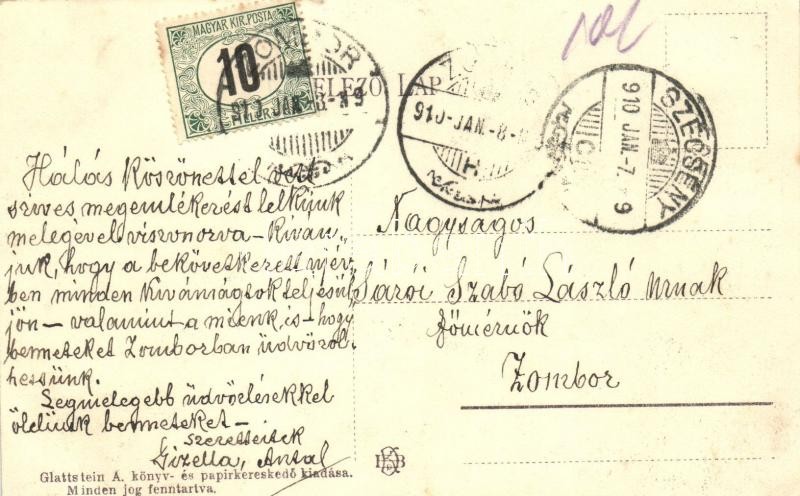 MAGYAR KIR. POSTA
10
ZOMBOR
910 JAN -8
LEVELEZŐ LAP
910-JAN.-8
SZÉCSÉNY
910 JAN -7 9
Hálás köszönettel vett
szíves megemlékezést lelkünk
melegével viszonozva – kíván„
juk, hogy a bekövetkezett újév„
ben minden kívánságtok teljesül„
jön – valamint a mienk is – hogy
benneteket Zomborban üdvözöl„
hessünk.
Legmelegebb üdvözlésekkel
ölelünk benneteket –
szeretteitek
Gizella, Antal
Nagyságos
Sárói Szabó László Urnak
főmérnök
Zombor
Glattstein A. könyv- és papirkereskedő kiadása.
Minden jog fenntartva.